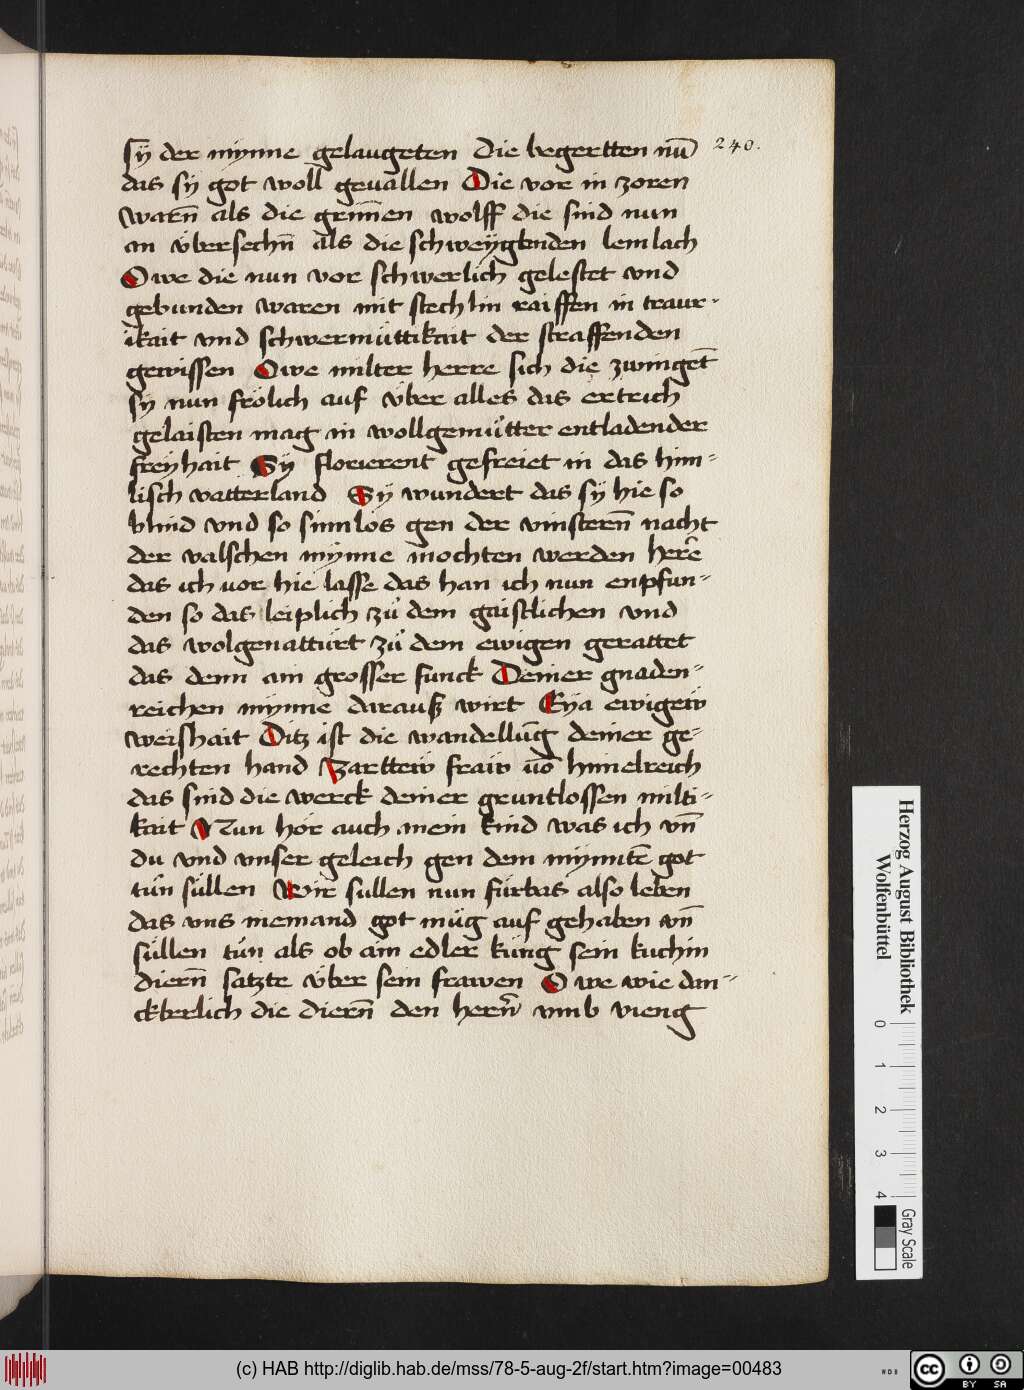 sÿ der mynne gelaugeten Die begertten nu̅ 240.
das sÿ got woll geuallen Die vor in zoren
warn̅ als die grim̅en wolff die sind nun
an v̈bersechn̅ als die schweÿgenden lemlach
Owe die nun vor schwerlich gelestet vnd
gebunden waren mit stechlin raiffen in traur-
ikait vnd schwermüttikait der straffenden
gewissen Owe milter herre sich die zwinget̅
sÿ nun frölich auf v̈ber alles das ertrich
gelaisten mag in wollgemütter entladender
freÿhait Sÿ florierent gefreiet in das him-
lisch vatterland Sÿ wundert das sÿ hie so
blind vnd so sinnlos gen der vinstern̅ nacht
der valschen mÿnne mochten werden here̅
das ich vor hie lasse das han ich nun enpfun-
den so das leiplich zů dem gaistlichen vnd
das wolgenattürt zů dem ewigen gerattet
das denn ain grosser funck Deiner gnaden-
reichen mynne darausz wirt Eÿa ewigeẅ
weishait Ditz ist die wandellu̅g deiner ge-
rechten hand Zartteẅ fraẅ vo̅ himelreich
das sind die werck deiner gruntlossen milti-
kait Nun hör auch mein kind was ich vn̅
du vnd vnser geleich gen dem mÿnnte̅ got
tün süllen Wir sullen nun fürbas also leben
das vns niemand got müg auf gehaben wn̅
süllen tün als ob ain edler küng sein kuchin
diern̅ satzte v̈ber sein frawen Owe wie dan-
ckberlich die diern̅ den hern̅ vmb vieng
Herzog August Bibliothek
Wolfenbüttel
0 1 2 3 4
Gray Scale
(c) HAB http://diglib.hab.de/mss/78-5-aug-2f/start.htm?image=00483
cc BY SA